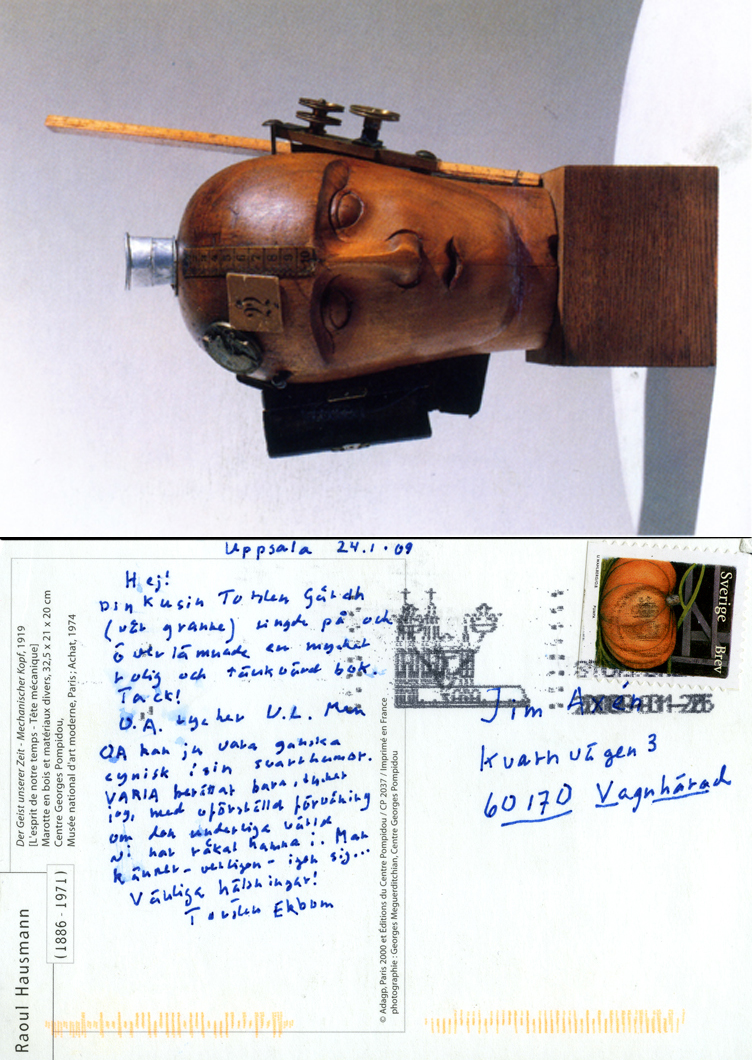 Uppsala 24.1.09
Hej!
Din Kusin Torsten Gårdh
(vår granne) ringde på och
överlämnade en mycket
rolig och tänkvärd bok.
Tack!
O.A. tycker U.L. Men
OA kan ju vara ganska
cynisk i sin svarthumor.
VARIA berättar bara, tycker
jag, med oförställd förvåning
om den underliga värld
vi har råkat hamna i. Man
känner – verkligen – igen sig...
Vänliga hälsningar!
Torsten Ekbom
Sverige Brev
Jim Axén
Kvarnvägen 3
60170 Vagnhärad
Der Geist unserer Zeit - Mechanischer Kopf, 1919
[L'esprit de notre temps - Tête mécanique]
Marotte en bois et matériaux divers, 32,5 x 21 x 20 cm
Centre Georges Pompidou,
Musée national d'art moderne, Paris; Achat, 1974
Raoul Hausmann
(1886 - 1971)
© Adagp, Paris 2000 et Éditions du Centre Pompidou / CP 2037 / Imprimé en France
photographie : Georges Meguerditchian, Centre Georges Pompidou